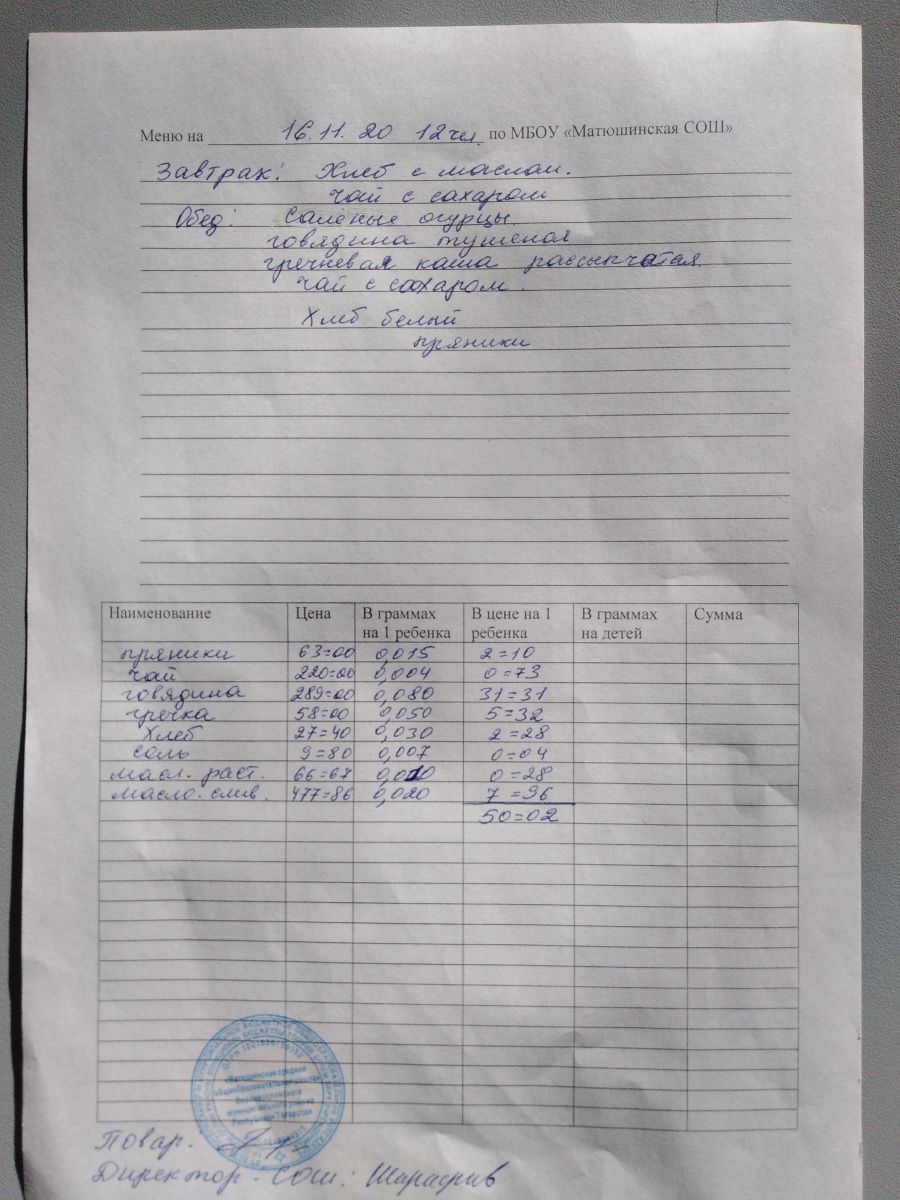 Меню на 16.11.20 12чел. по МБОУ «Матюшинская СОШ»
Завтрак: Хлеб с маслом.
чай с сахаром
Обед: Салёные огурцы
говядина тушеная
гречневая каша рассыпчатая
чай с сахаром.
Хлеб белый
пряники
Наименование Цена В граммах на 1 ребенка В цене на 1 ребенка В граммах на детей Сумма
пряники 63=00 0,015 2=10
чай 220=00 0,004 0=73
говядина 289=00 0,080 31=31
гречка 58=00 0,050 5=32
Хлеб 27=40 0,030 2=28
соль 9=80 0,007 0=04
масл. раст. 66=67 0,010 0=28
масло. слив. 477=86 0,020 7=96
50=02
«Матюшинская средняя
общеобразовательная школа»
Верхнеуслонского
муниципального района
Республики Татарстан
Повар.
Директор - СОШ: